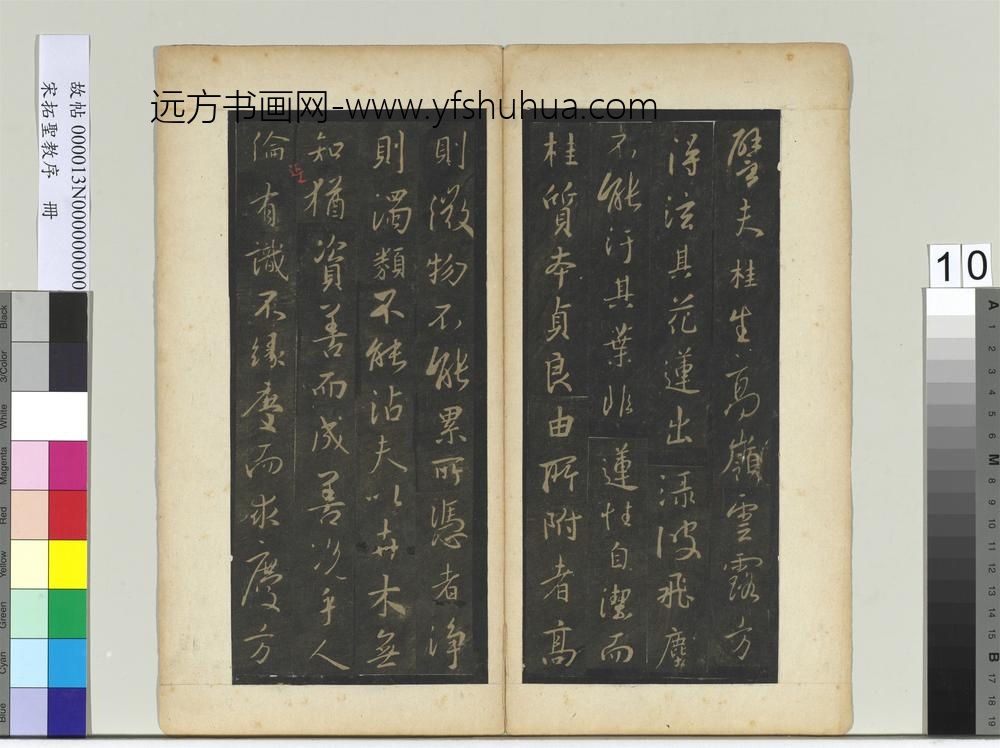 远方书画网-www.yfshuhua.com
故帖 000013N000000000
宋拓聖教序 冊
10
譬夫桂生高嶺雲露方
得泫其花蓮出淥波飛塵
不能汙其葉非蓮性自潔而
桂質本貞良由所附者高
則微物不能累所憑者淨
則濁類不能沾夫以卉木無
知猶資善而成善况乎人
倫有識不緣慶而求慶方
Black
3/Color
White
Magenta
Red
Yellow
Green
Cyan
Blue
A
1
2
3
4
5
6
M
8
9
10
11
12
13
14
15
B
17
18
19